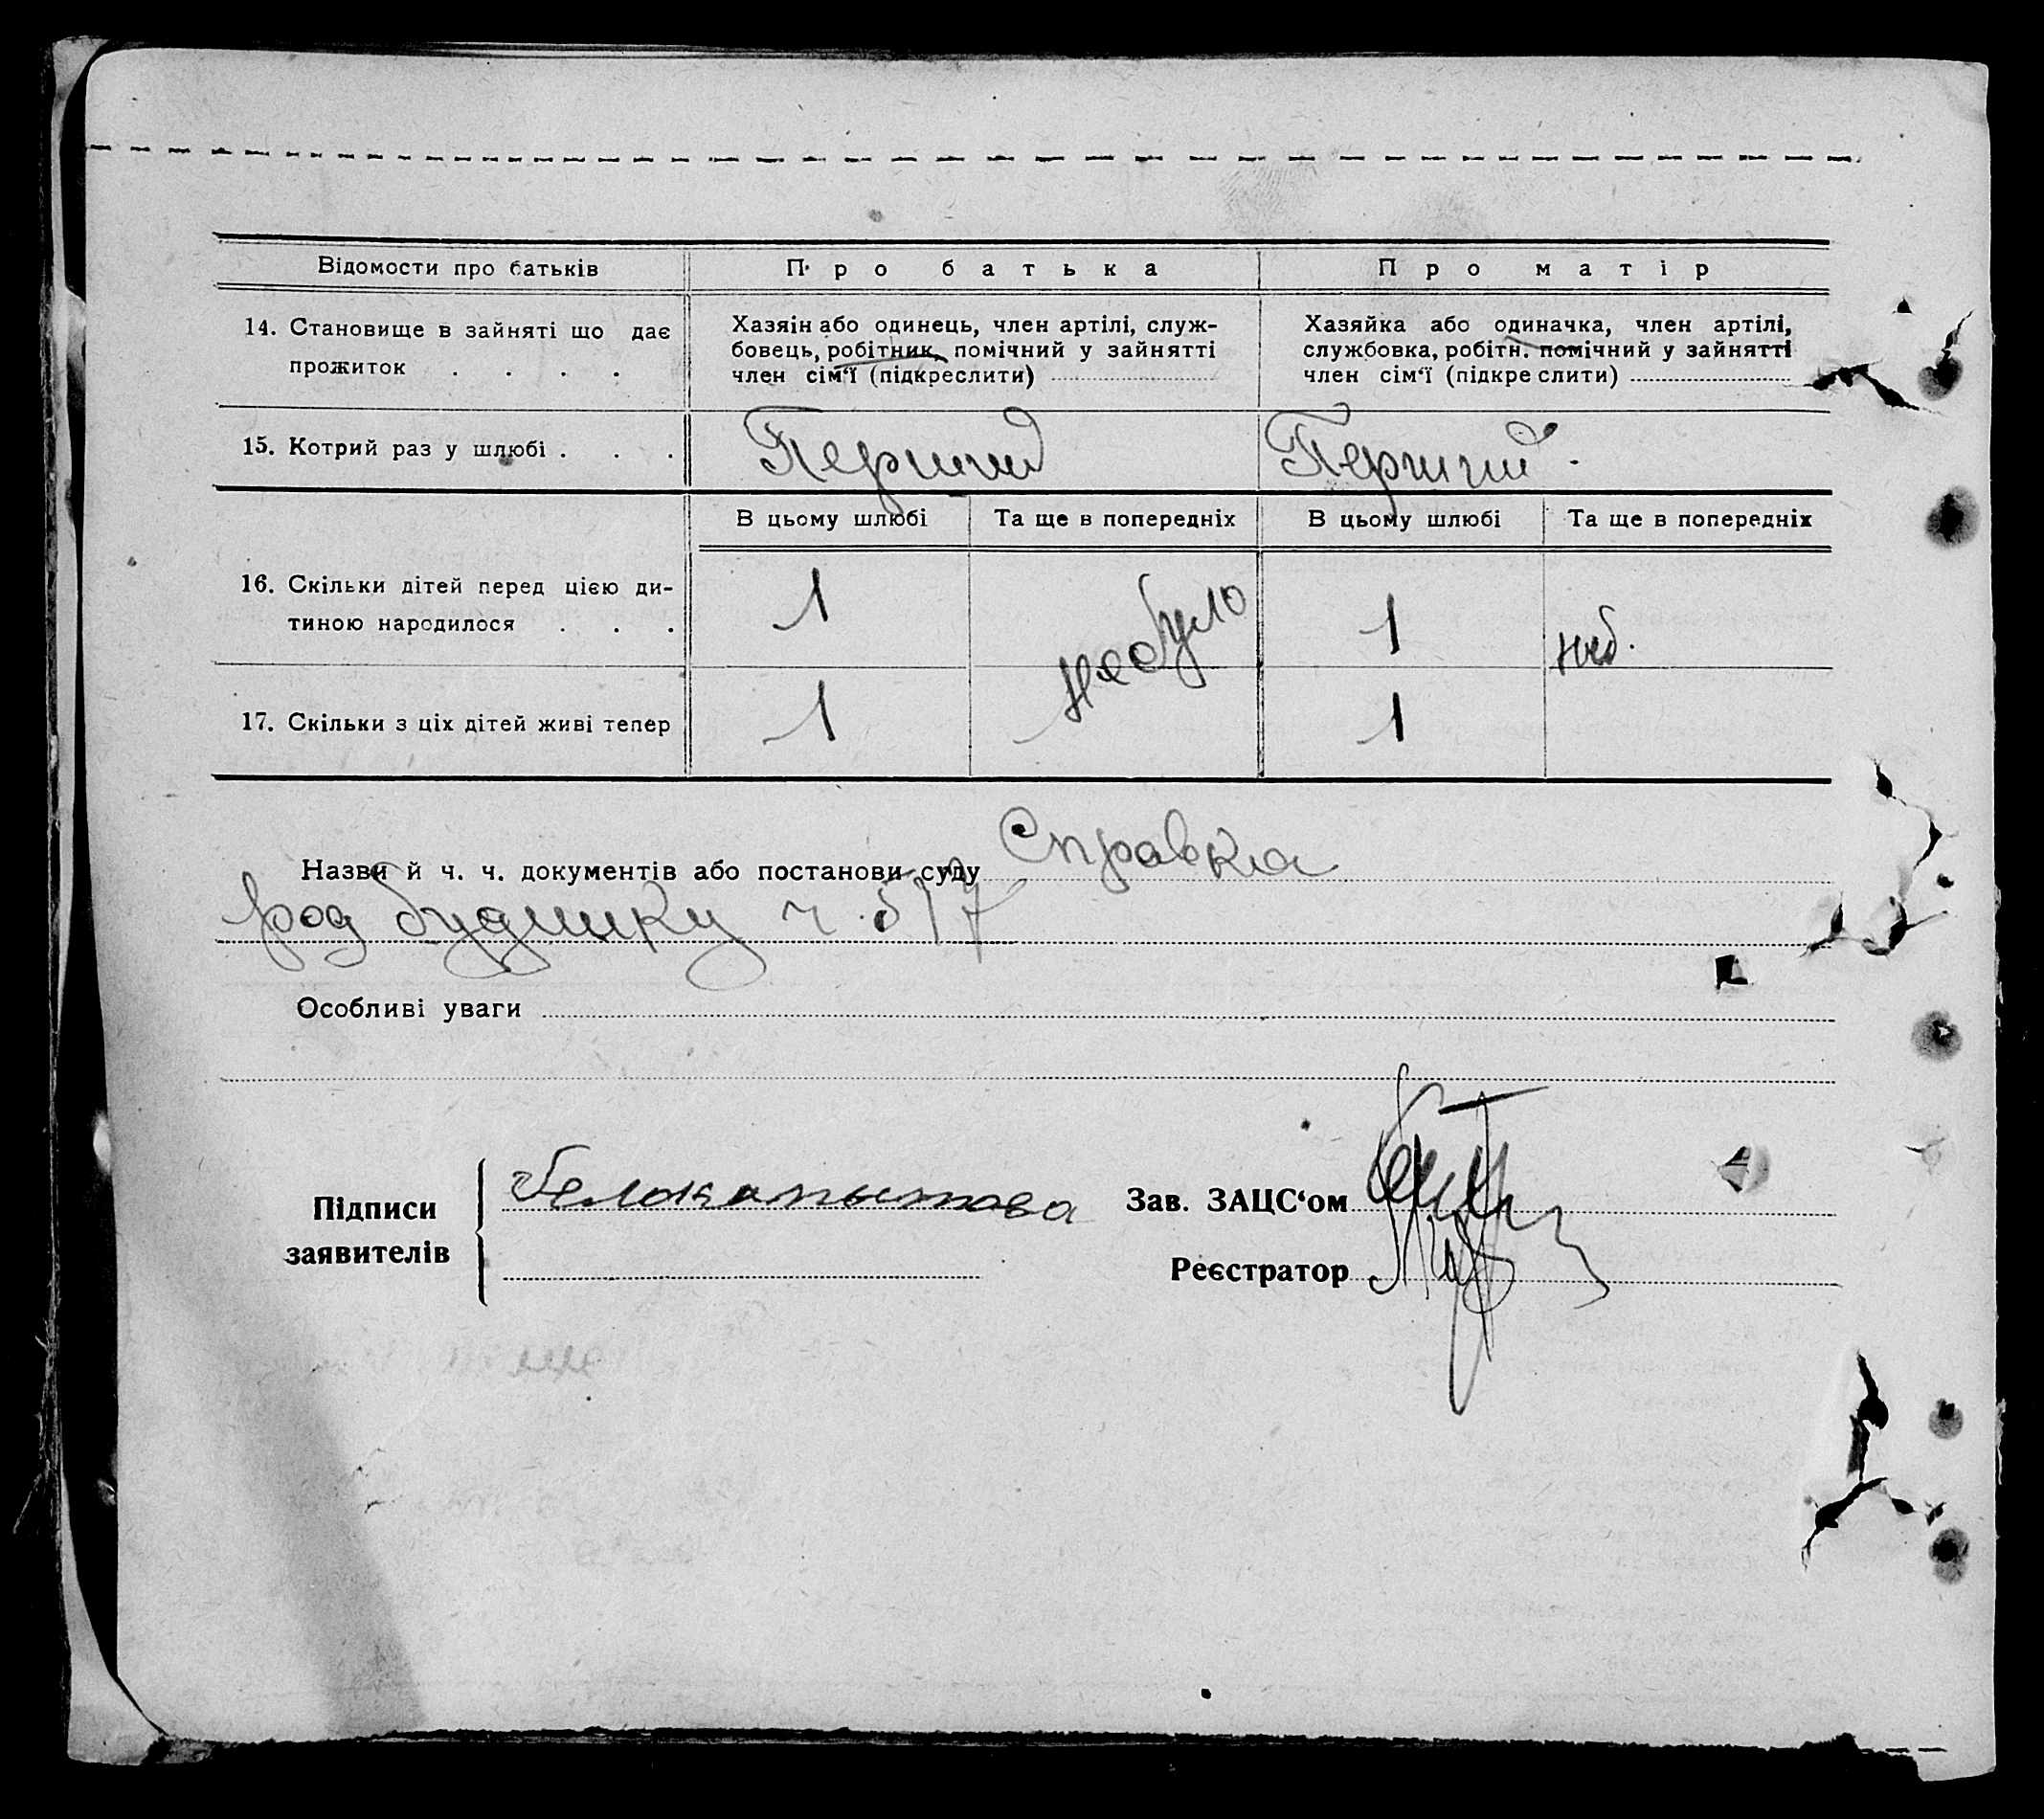 Відомости про батьків Про батька Про матір
14. Становище в зайняті що дає
прожиток . . . .
Хазяін або одинець, член артілі, служ-
бовець, робітник, помічний у зайнятті
член сім‘ї (підкреслити)
Хазяйка або одиначка, член артілі,
службовка, робітн. помічний у зайнятті
член сім‘ї (підкреслити)
15. Котрий раз у шлюбі . . . Перший Перший
В цьому шлюбі Та ще в попередніх В цьому шлюбі Та ще в попередніх
16. Скільки дітей перед цією ди-
тиною народилося . . .
1 не було 1 неб.
17. Скільки з ціх дітей живі тепер 1 1
Назви й ч. ч. документів або постанови суду Справка
род будинку ч. 517
Особливі уваги
Підписи
заявителів
Белокопытова
Зав. ЗАЦС‘ом
Реєстратор